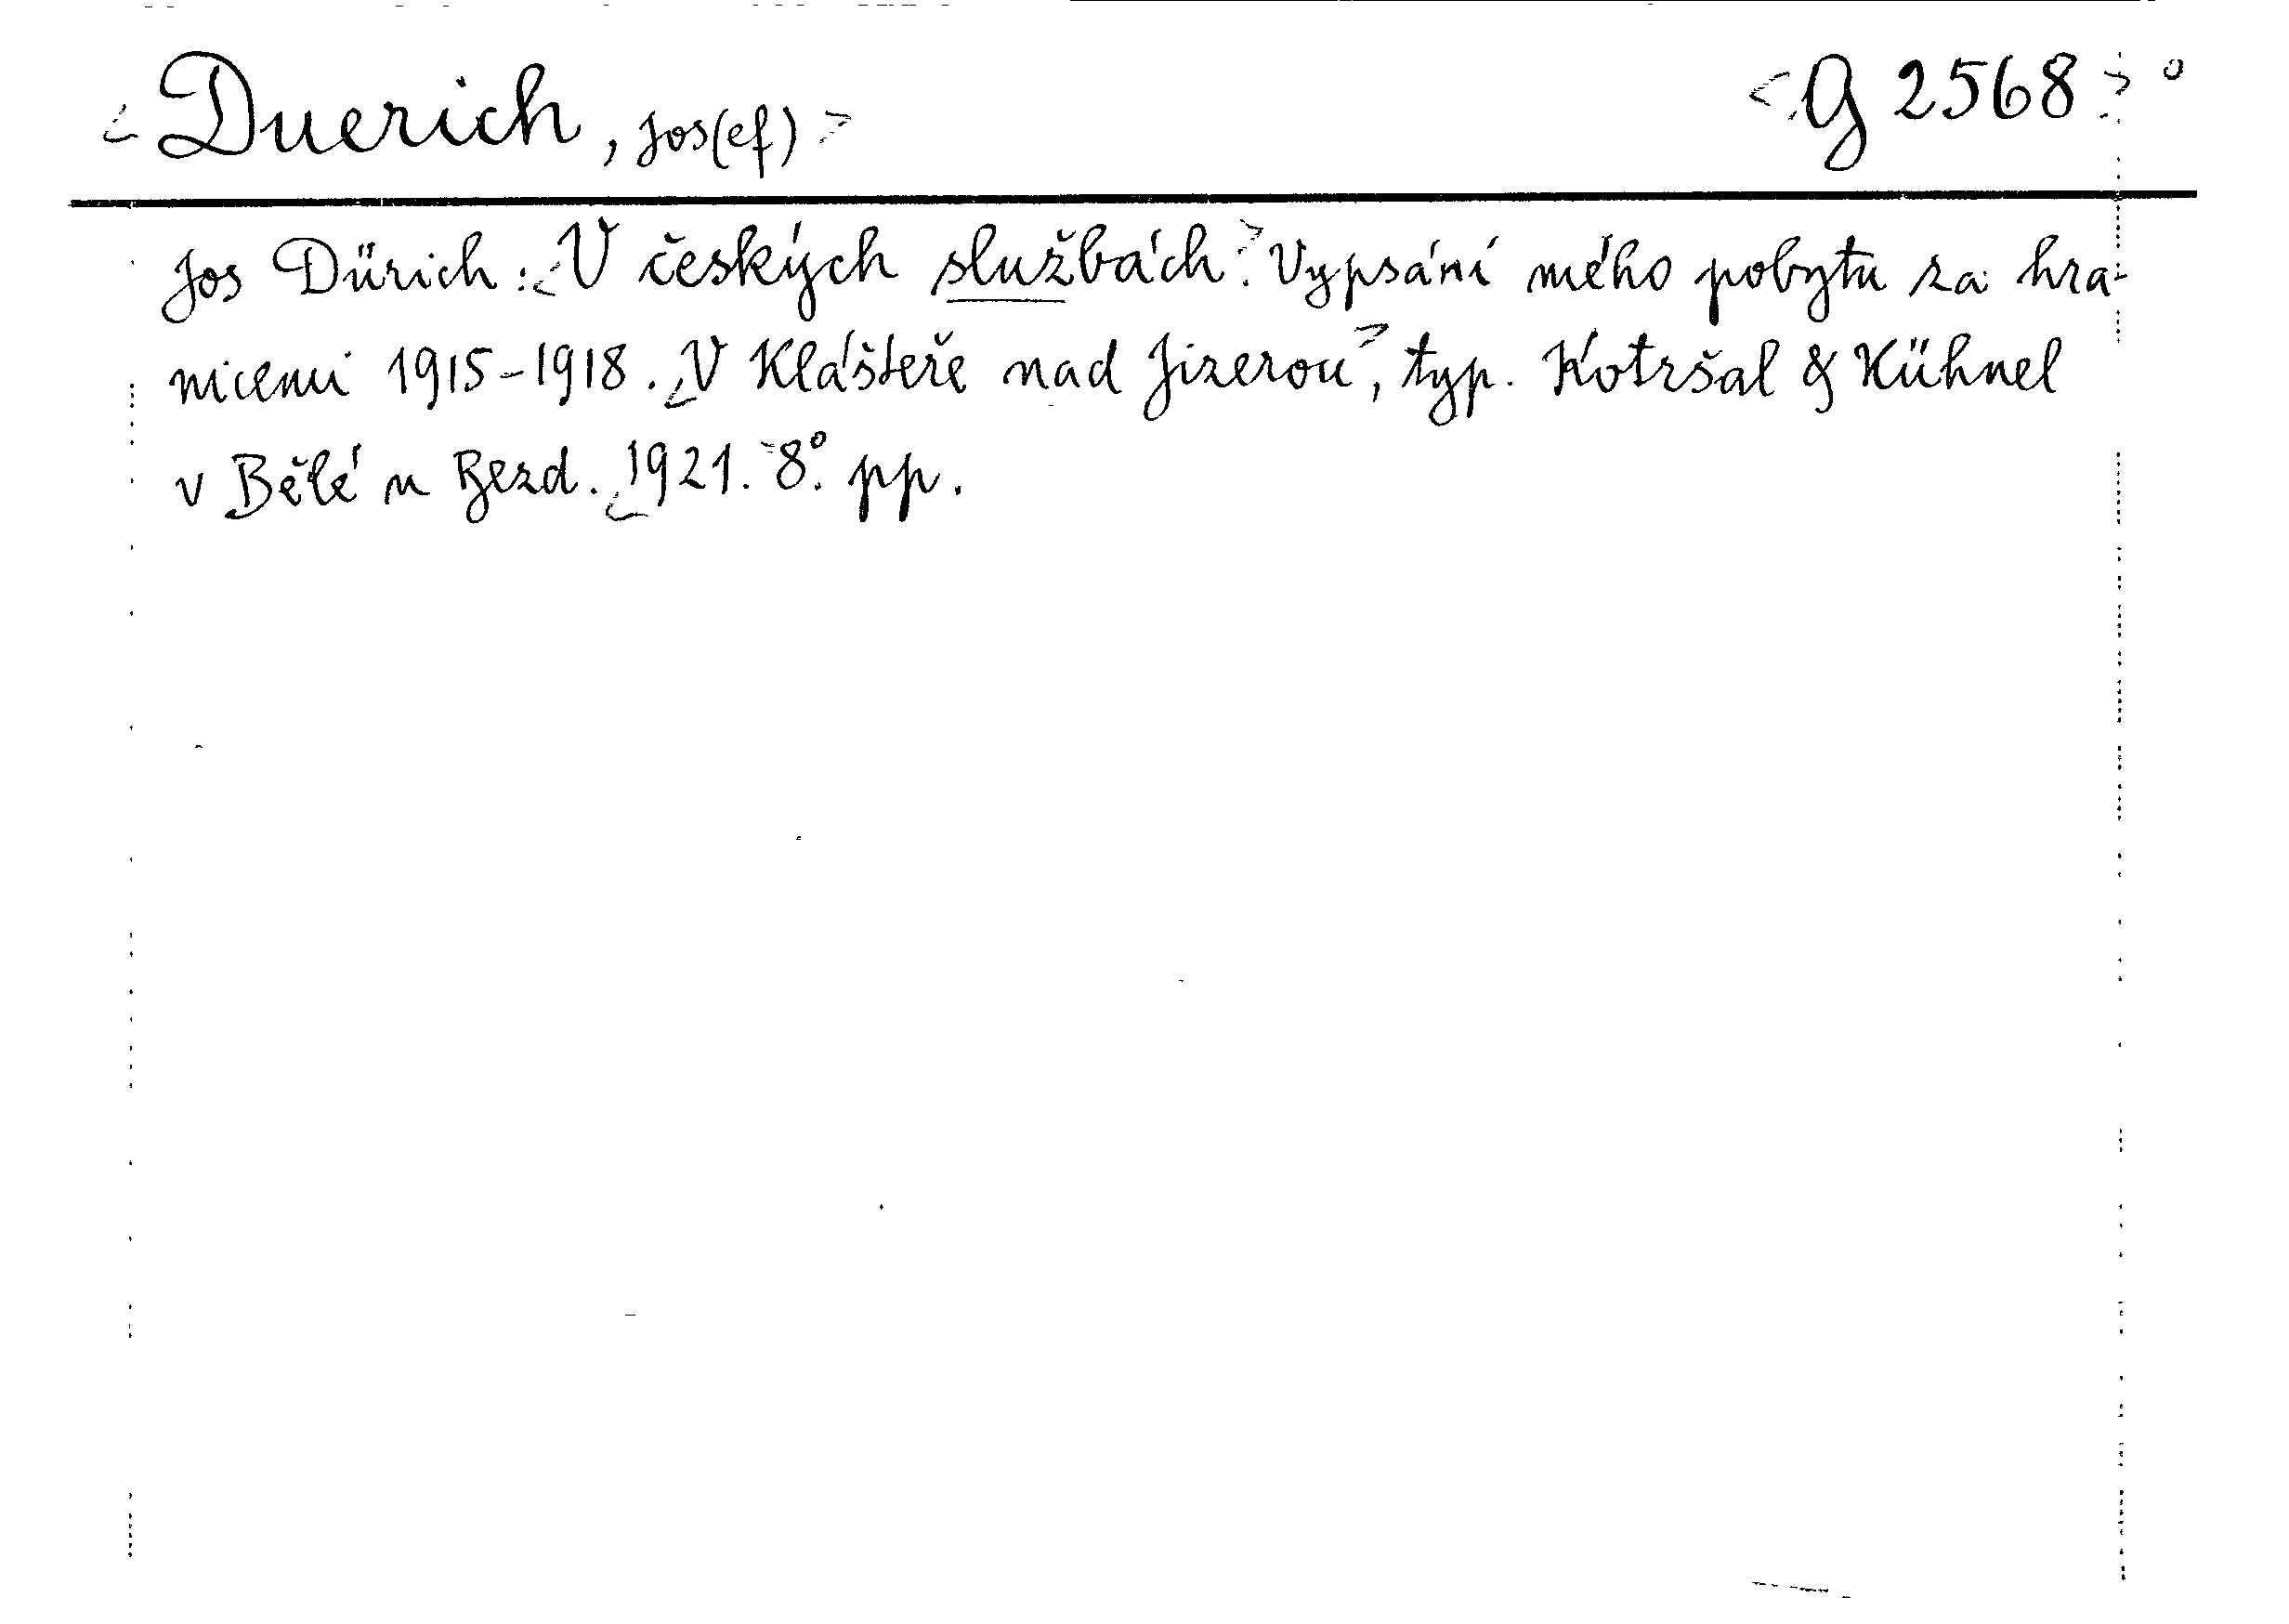 <Duerich, Jos(ef)> <G 2568> °
Jos Dürich: <V českých službách.> Vypsání mého pobytu za hra-
nicemi 1915-1918. <V Klášteře nad Jizerou>, typ. Kotršal & Kühnel
v Bělé u Bezd. <1921.> 8°. pp.